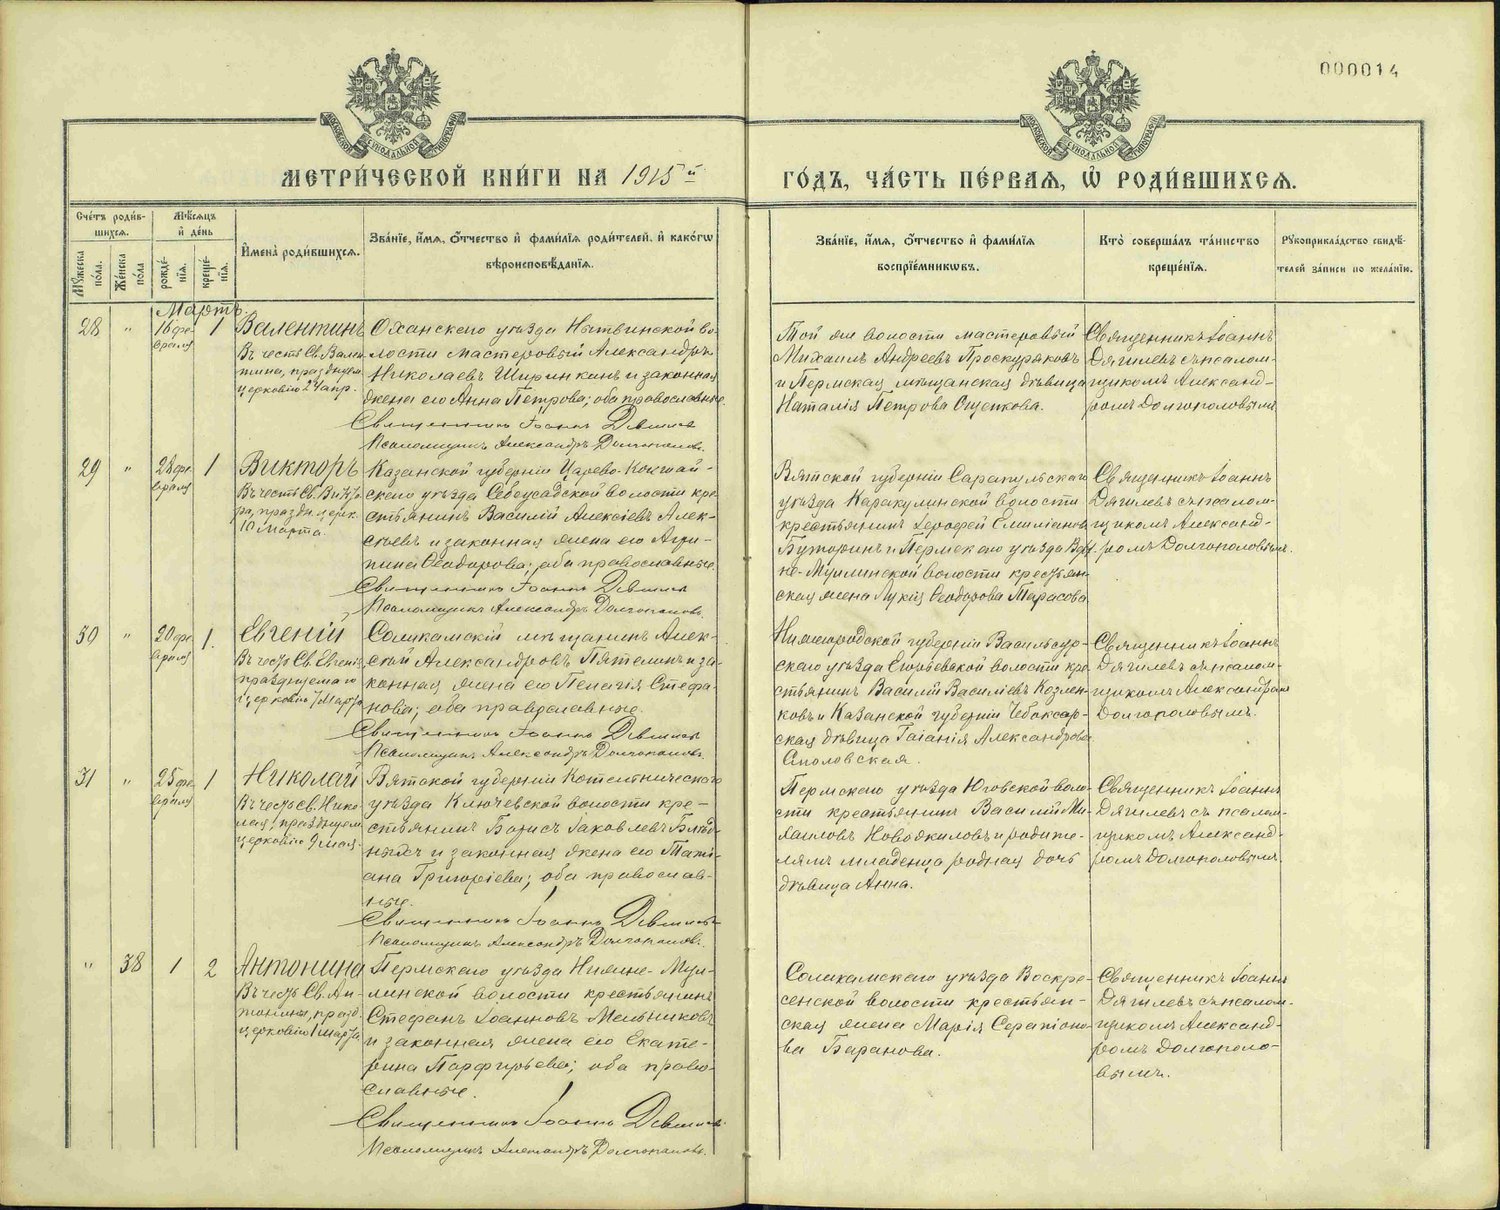 000014
МЕТРИ́ЧЕСКОЙ КНИ́ГИ НА 1915й
ГО́ДЪ, ЧА́СТЬ ПЕ́РВАѦ, Ѡ҆ РОДИ́ВШИХСѦ.
Сче́тъ роди́в-
шихсѧ.
Мꙋ́жеска
по́ла.
Же́нска
по́ла
Мѣ́сѧцъ
и҆ де́нь
рожде́-
нїѧ.
креще́-
нїѧ.
И҆мена̀ роди́вшихсѧ.
Зва́нїе, и҆́мѧ, ѻ҆́тчество и҆ фами́лїѧ роди́телей, и҆ како́гѡ
вѣроисповѣ́данїѧ.
Зва́нїе, и҆́мѧ, ѻ҆́тчество и҆ фами́лїѧ
воспрїе́мникѡвъ.
Кто̀ соверша́лъ та́инство
креще́нїѧ.
Рꙋкоприкла́дство свидѣ́-
телей за́писи по жела́нїю.
Мартъ.
28 " 16 фе-
враля 1
Валентинъ
Въ честь Св. Вален-
тина, празднуем.
церковію 24 апр.
Оханскаго уѣзда Нытвинской во-
лости мастеровый Александръ
Николаевъ Ширинкинъ и законная
жена его Анна Петрова; оба православные.
Священникъ Іоаннъ Дягилевъ
Псаломщикъ Александръ Долгополовъ.
Той же волости мастеровый
Михаилъ Андреевъ Проскуряковъ
и Пермская мѣщанская дѣвица
Наталія Петрова Ощепкова.
Священникъ Іоаннъ
Дягилевъ съ псалом-
щикомъ Александ-
ромъ Долгополовымъ.
29 " 28 фе-
враля 1
Викторъ
Въ честь Св. Викто-
ра, праздн. церк.
10 марта.
Казанской губерніи Царево-Кокшай-
скаго уѣзда Себеусадской волости кре-
стьянинъ Василій Алексіевъ Алек-
сѣевъ и законная жена его Агри-
пина Ѳеодорова; оба православные.
Священникъ Іоаннъ Дягилевъ
Псаломщикъ Александръ Долгополовъ.
Вятской губерніи Сарапульскаго
уѣзда Каракулинской волости
крестьянинъ Іероѳей Емиліановъ
Буторинъ и Пермскаго уѣзда Верх-
не-Муллинской волости крестьян-
ская жена Ѳеодорова Тарасова
Священникъ Іоаннъ
Дягилевъ съ псалом-
щикомъ Александ-
ромъ Долгополовымъ.
30 " 20 фе-
враля 1.
Евгеній
Въ честь Св. Евгенія
празднуемаго
церковію 7 Марта
Соликамскій мѣщанинъ Алек-
сѣй Александровъ Пятелинъ и за-
конная жена его Пелагія Стефа-
нова; оба православные.
Священникъ Іоаннъ Дягилевъ
Псаломщикъ Александръ Долгополовъ.
Нижегородской губерніи Васильсур-
скаго уѣзда волости кре-
стьянинъ Василій Василіевъ Козлен-
ковъ и Казанской губерніи Чебоксар-
ская дѣвица Таіанія Александрова
Споловская.
Священникъ Іоаннъ
Дягилевъ съ псалом-
щикомъ Александромъ
Долгополовымъ.
31 " 25 фе-
враля 1
Николай
Въ честь св. Нико-
лая, празднуем.
церковію 9 мая.
Вятской губерніи Котельническаго
уѣзда Ключевской волости кре-
стьянинъ Борисъ Іаковлевъ Блед-
ныхъ и законная жена его Тати-
ана Григоріева; оба православ-
ные.
Священникъ Іоаннъ Дягилевъ
Псаломщикъ Александръ Долгополовъ.
Пермскаго уѣзда Юговской воло-
сти крестьянинъ Василій Ми-
хаиловъ Новожиловъ и родите-
лямъ младенца родная дочь
дѣвица Анна.
Священникъ Іоаннъ
Дягилевъ съ псалом-
щикомъ Александ-
ромъ Долгополовымъ.
" 38 1 2
Антонина
Въ честь Св. Ан-
тонины, празд.
церковію 1 марта
Пермскаго уѣзда Нижне-Мул-
линской волости крестьянинъ
Стефанъ Іоанновъ Мельниковъ
и законная жена его Екате-
рина Парфирьева; оба право-
славные.
Священникъ Іоаннъ Дягилевъ
Псаломщикъ Александръ Долгополовъ.
Соликамскаго уѣзда Воскре-
сенской волости крестьян-
ская жена Марія Серапіоно-
ва Баранова.
Священникъ Іоаннъ
Дягилевъ съ псалом-
щикомъ Александ-
ромъ Долгополо-
вымъ.